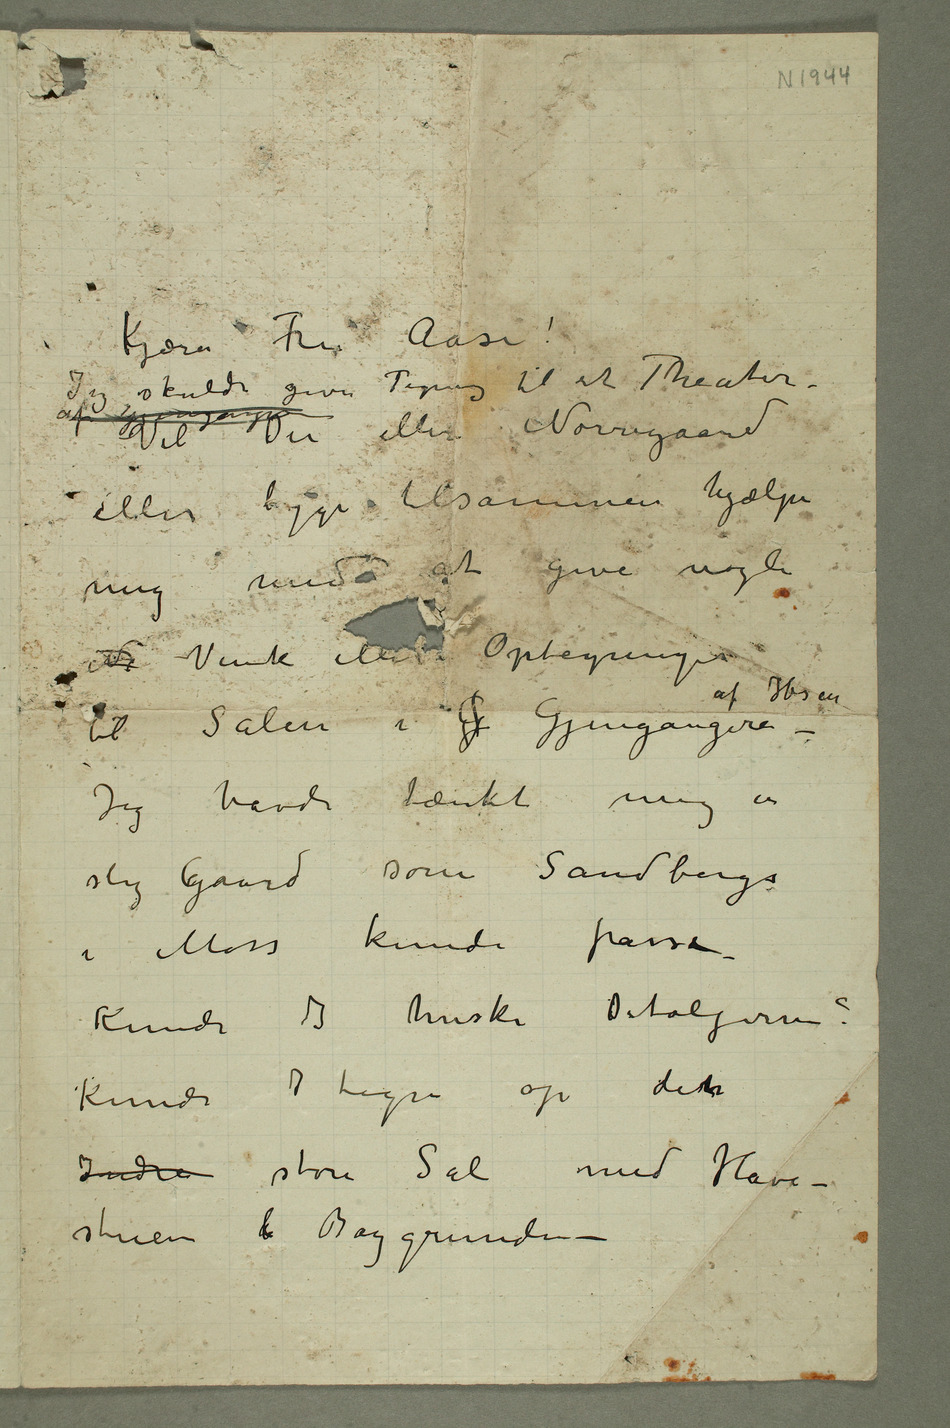 N1944
Kjære Fru Aase!
Jeg skulde give Tegning til et Theater –
af gjengangere
Vil De eller Nørregaard
eller begge tilsammen hjælpe
mig med at give nogle
Vink eller Optegninger
af Ibsen
til Salen i G Gjengangere –
Jeg havde tænkt mig en
slig Gaard som Sandbergs
i Moss kunde passe –
Kunde I huske Detaljerne?
Kunde I tegne op den
Indre store Sal med Have–
stuen i Baggrunden –